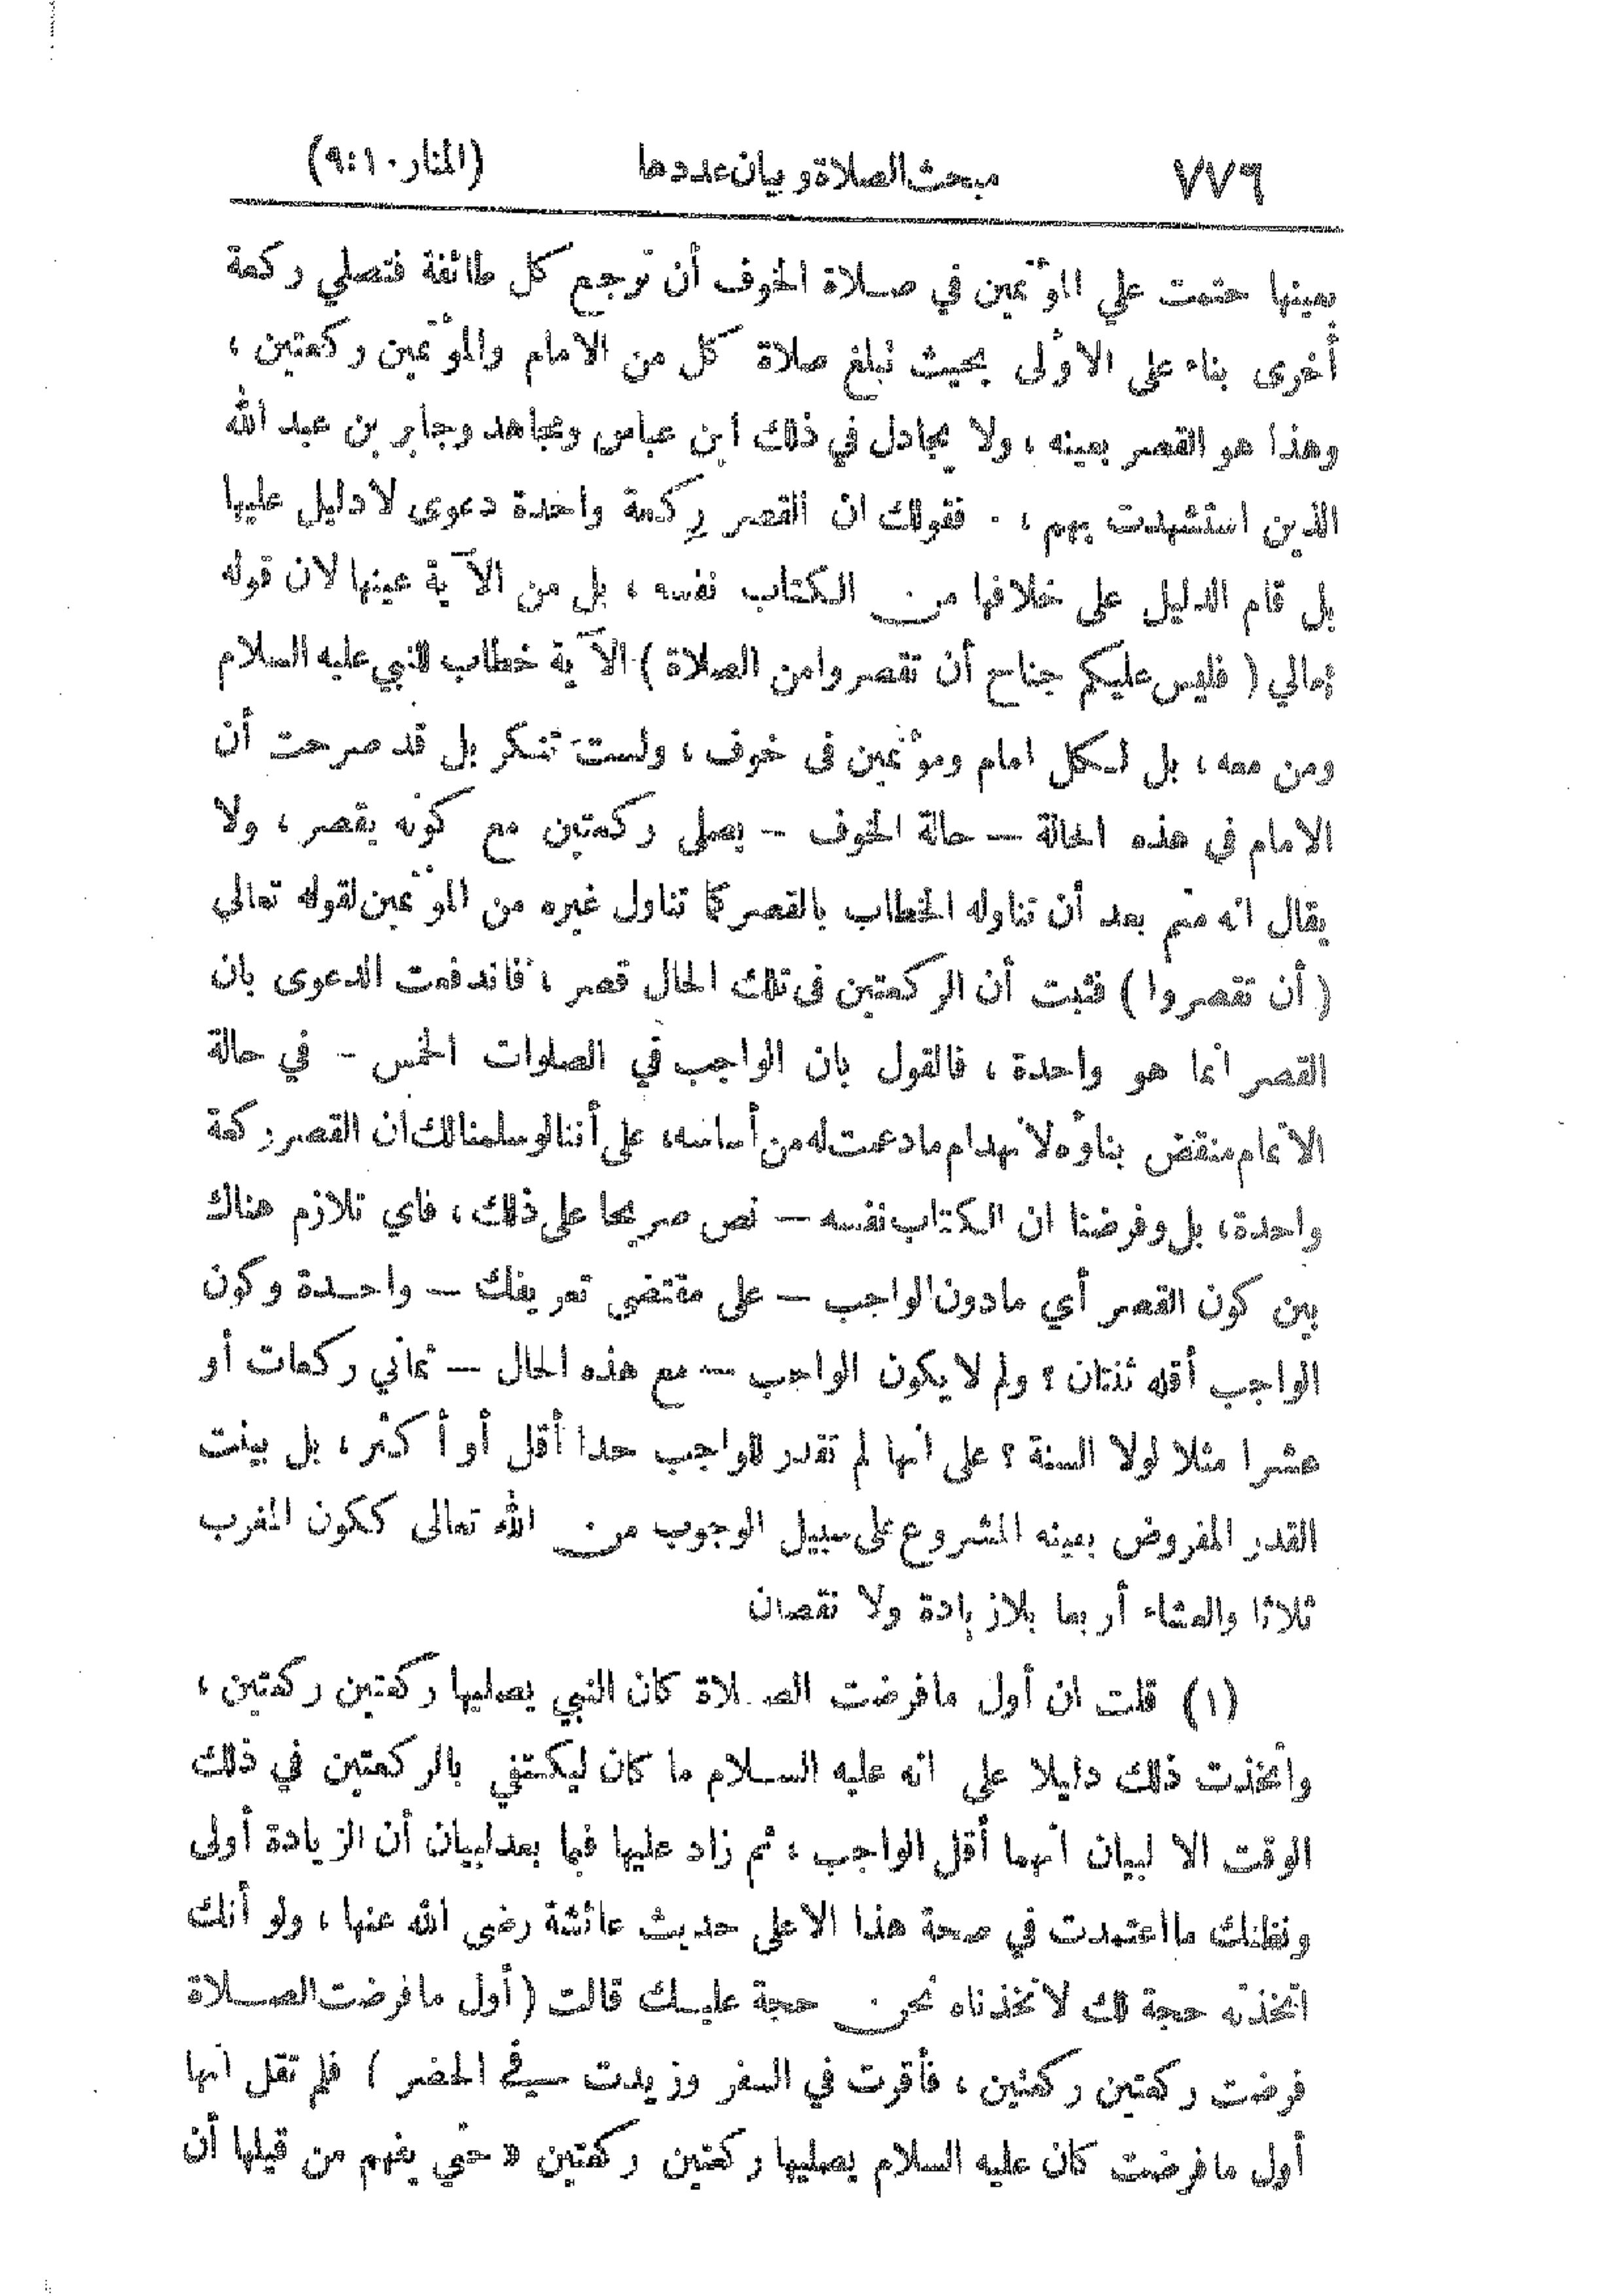 ٧٧٦ مبحث الصلاة وبيان عددها (المنار ١٠ : ٩)
بعينها حتمت على المؤتمين في صلاة الخوف أن ترجع كل طائفة فتصلي ركعة
أخرى بناء على الأولى بحيث تبلغ صلاة كل من الامام والمؤتمين ركعتين ،
وهذا هو القصر بعينه ، ولا يجادل في ذلك ابن عباس ومجاهد وجابر بن عبد الله
الذين استشهدت بهم ، . فقولك ان القصر ركعة واحدة دعوى لا دليل عليها
بل قام الدليل على خلافها من الكتاب نفسه ، بل من الآية عينها لان قوله
تعالي ( فليس عليكم جناح أن تقصروا من الصلاة ) الآية خطاب للنبي عليه السلام
ومن معه ، بل لكل امام ومؤتمين فى خوف ، ولستَ تنكر بل قد صرحت أن
الامام في هذه الحالة — حالة الخوف — يصلى ركعتين مع كونه يقصر ، ولا
يقال انه متم بعد أن تناوله الخطاب بالقصر كما تناول غيره من المؤتمين لقوله تعالي
( أن تقصروا ) فثبت أن الركعتين فى تلك الحال قصر ، فاندفعت الدعوى بان
القصر انما هو واحدة ، فالقول بان الواجب في الصلوات الخمس – في حالة
الاتمام منقض بناؤه لانهدام ما دعمت له من أساسه، على أننا لو سلمنا لك ان القصر ركعة
واحدة، بل وفرضنا ان الكتاب نفسه — نص صريحا على ذلك ، فاي تلازم هناك
بين كون القصر أي مادون الواجب — على مقتضى تعريفك — واحدة وكون
الواجب أقله ثنتان ؟ ولم لا يكون الواجب — مع هذه الحال — ثماني ركعات أو
عشرا مثلا لولا السنة ؟ على انها لم تقدر للواجب حدا أقل أو أكثر ، بل بينت
القدر المفروض بعينه المشروع على سبيل الوجوب من الله تعالى ككون المغرب
ثلاثا والعشاء أربعا بلا زيادة ولا نقصان
(١) قلت ان أول ما فرضت الصلاة كان النبي يصليها ركعتين ركعتين ،
واتخذت ذلك دليلا على انه عليه السلام ما كان ليكتفي بالركعتين في ذلك
الوقت الا لبيان انهما أقل الواجب ، ثم زاد عليها فيما بعد لبيان أن الزيادة أولى
ونظنك ما اعتمدت في صحة هذا الا على حديث عائشة رضي الله عنها ، ولو أنك
اتخذته حجة لك لاتخذناه نحن حجة عليك قالت ( أول ما فرضت الصلاة
فرضت ركعتين ركعتين ، فأقرت في السفر وزيدت في الحضر ) فلم تقل انها
أول ما فرضت كان عليه السلام يصليها ركعتين ركعتين « حتى يفهم من قيلها أن